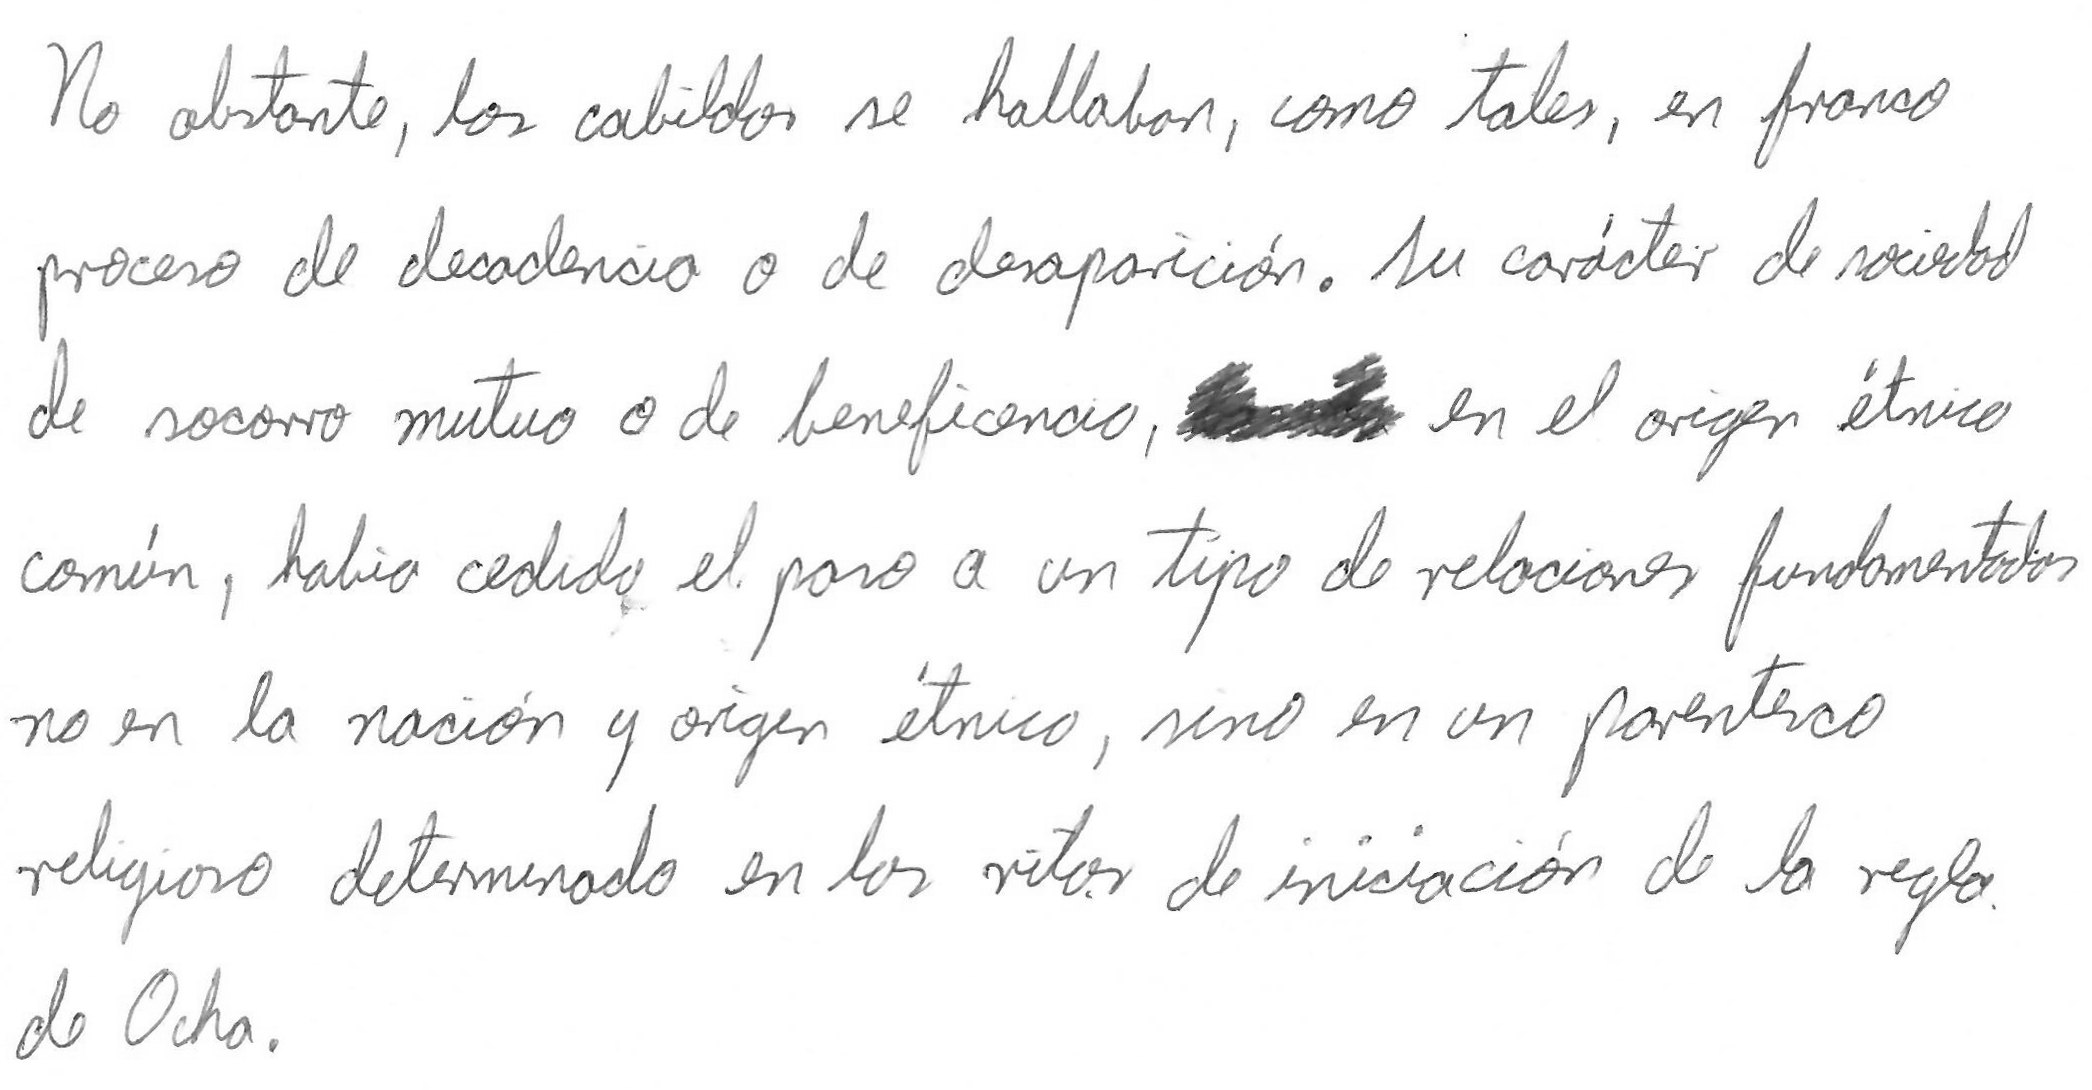 No obstante, los cabildos se hallaban, como tales, en franco
proceso de decadencia o de desaparición. Su carácter de sociedad
de socorro mutuo o de beneficencia, en el origen étnico
común, había cedido el paso a un tipo de relaciones fundamentadas
no en la nación y origen étnico, sino en un parentesco
religioso determinado en los ritos de iniciación de la regla
de Ocha.